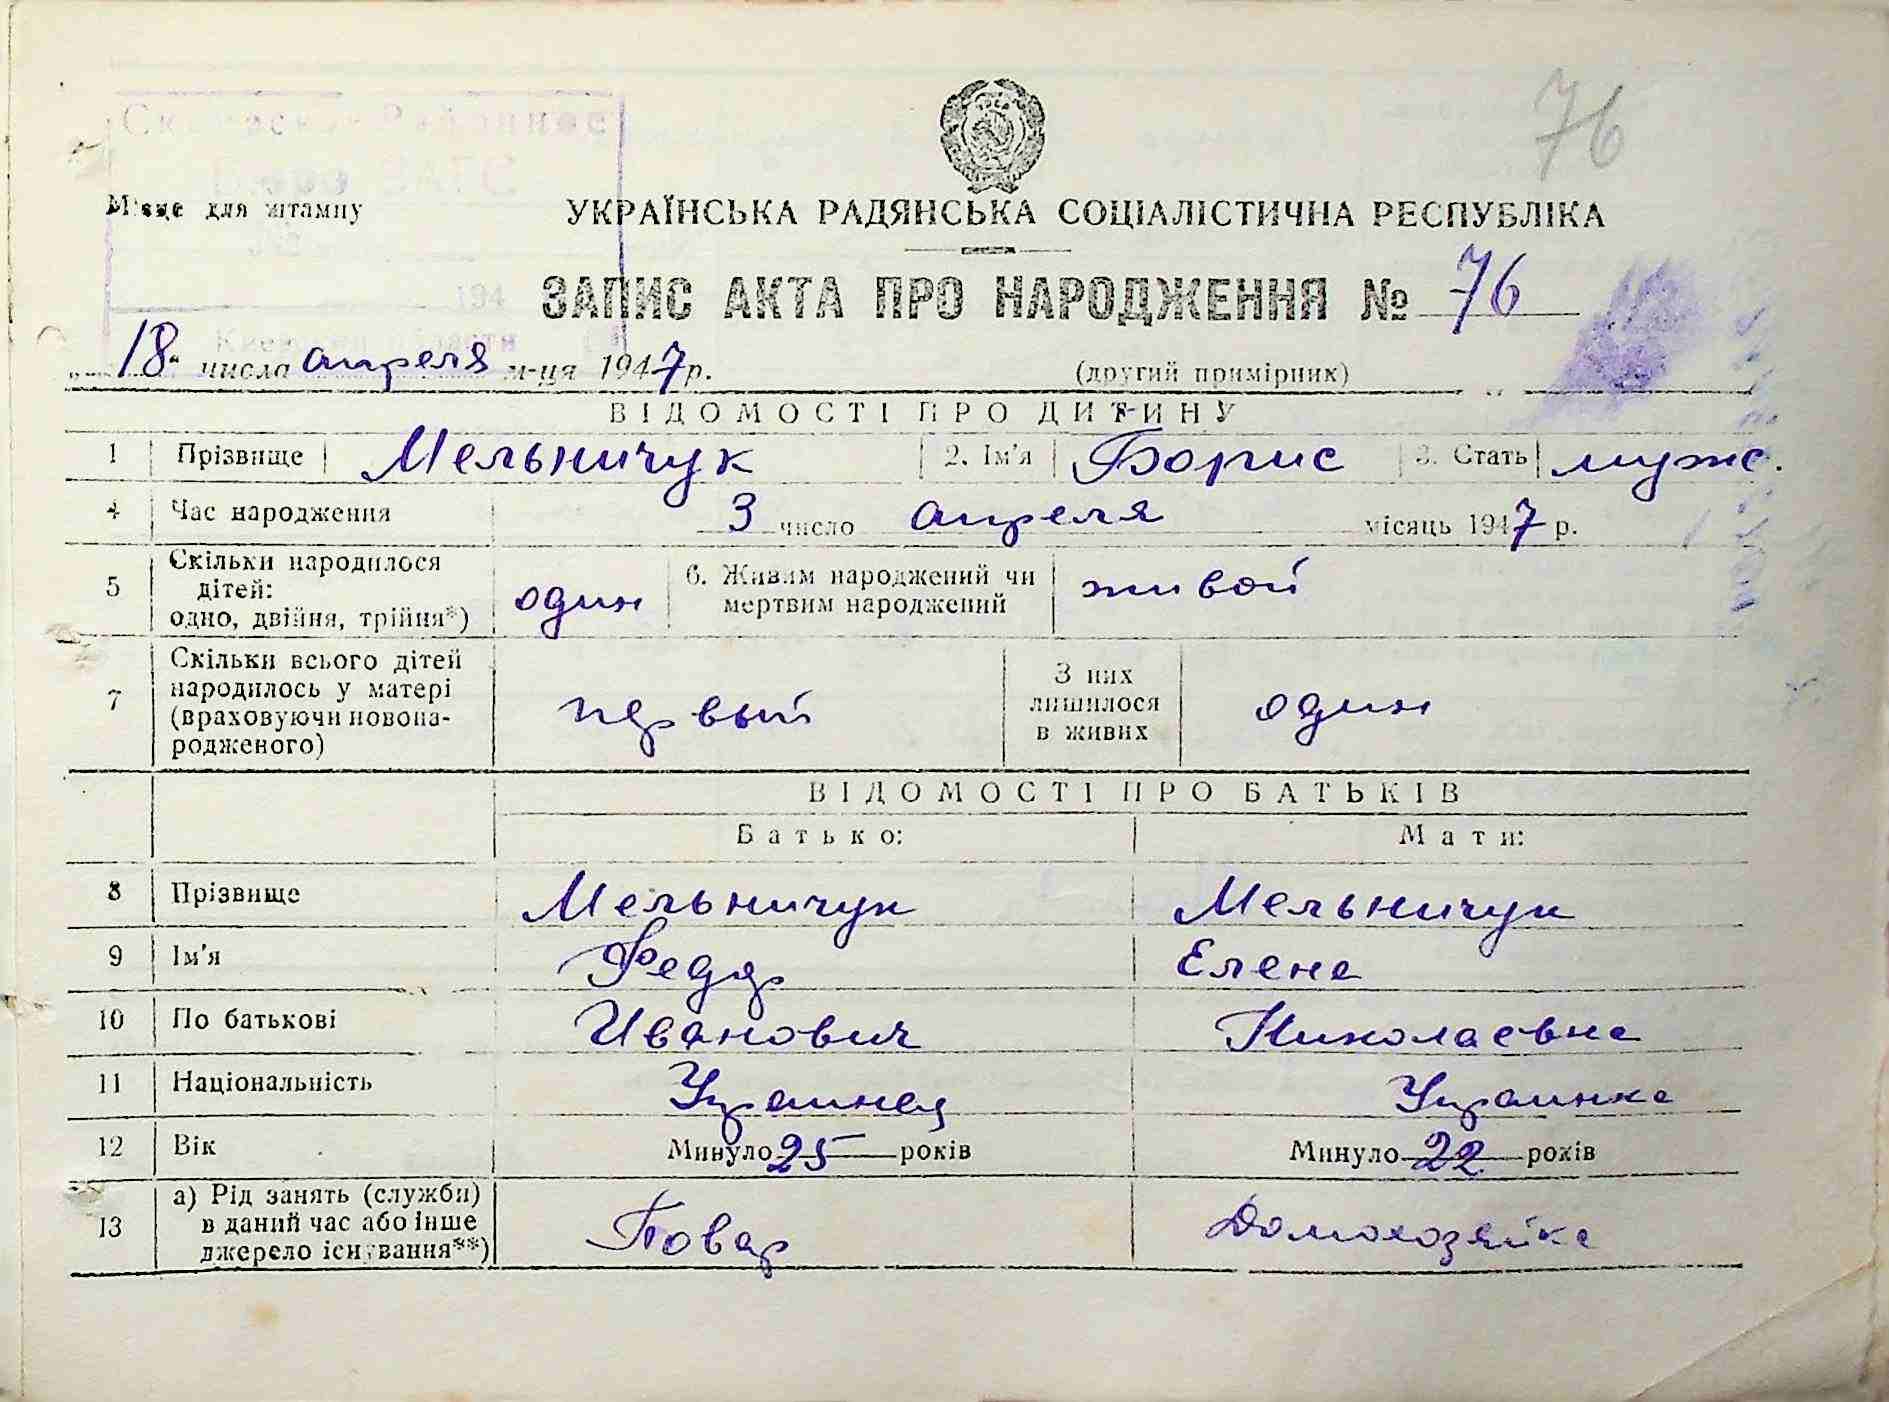 76
Районное
ЗАГС
194
Місце для штампу
УКРАЇНСЬКА РАДЯНСЬКА СОЦІАЛІСТИЧНА РЕСПУБЛІКА
ЗАПИС АКТА ПРО НАРОДЖЕННЯ № 76
18 числа апреля м-ця 1947 р. (другий примірник)
ВІДОМОСТІ ПРО ДИТИНУ
1 Прізвище Мельничук 2. Ім'я Борис 3. Стать муж.
4 Час народження 3 число апреля місяць 1947 р.
5 Скільки народилося дітей: одно, двійня, трійня*) один 6. Живим народжений чи мертвим народжений живой
7 Скільки всього дітей народилось у матері (враховуючи новонародженого) первый З них лишилося в живих один
ВІДОМОСТІ ПРО БАТЬКІВ
Батько: Мати:
8 Прізвище Мельничук Мельничук
9 Ім'я Федор Елена
10 По батькові Иванович Николаевна
11 Національність Украинец Украинка
12 Вік Минуло 25 років Минуло 22 років
13 а) Рід занять (служби) в даний час або інше джерело існування**) Повар Домохозяйка